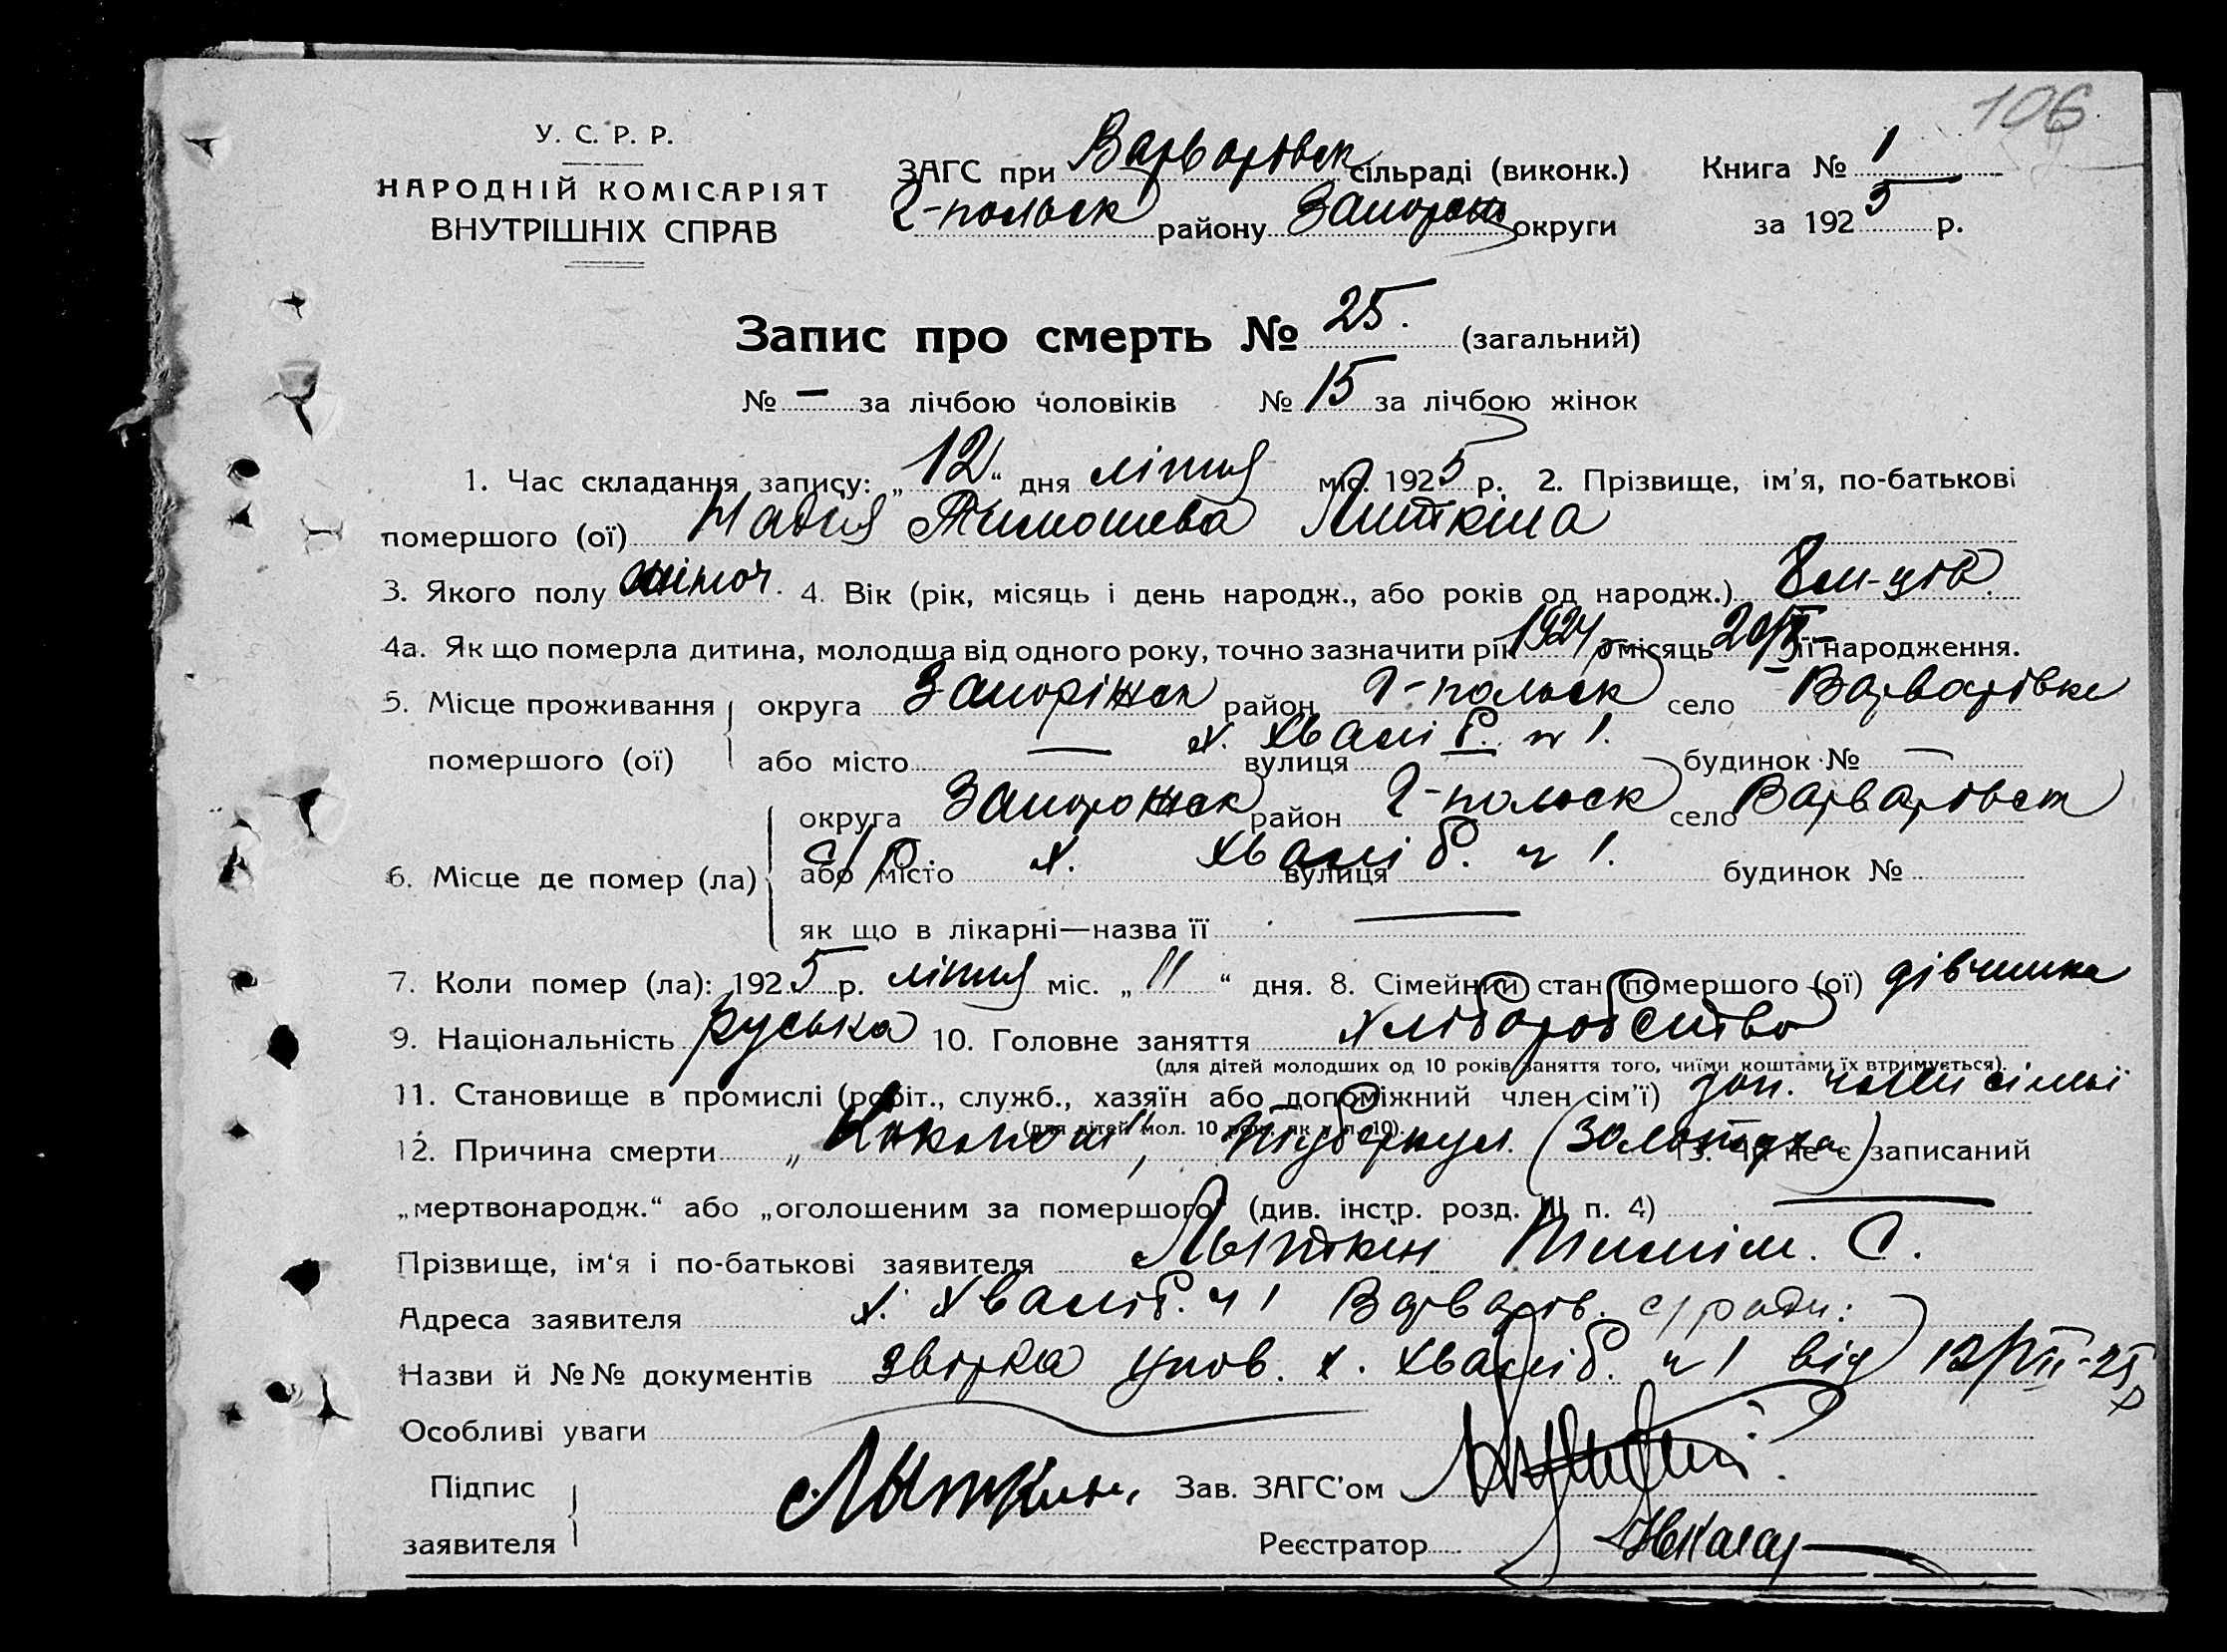 106
У. С. Р. Р.
НАРОДНІЙ КОМІСАРІЯТ
ВНУТРІШНІХ СПРАВ
ЗАГС при Варварівск сільраді (виконк.) Книга № 1
Г-польск району Запорож округи за 1925 р.
Запис про смерть № 25. (загальний)
№ — за лічбою чоловіків № 15 за лічбою жінок
1. Час складання запису: „12“ дня літня міс. 1925 р. 2. Прізвище, ім'я, по-батькові
помершого (ої) Надія Тимошева Литкіна
3. Якого полу жіноч. 4. Вік (рік, місяць і день народж., або років од народж.) 8 м-ців
4а. Як що померла дитина, молодша від одного року, точно зазначити рік 1924 р місяць 20/X її народження.
5. Місце проживання округа Запоріжск район Г-польск село Варварівка
х. Хваліб. ч 1.
помершого (ої) або місто — вулиця будинок № —
округа Запорожск район Г-польск село Варварівст
6. Місце де помер (ла) або місто с/р х. вулиця Хваліб. ч 1. будинок №
як що в лікарні—назва її —
7. Коли помер (ла): 1925 р. літня міс. „11“ дня. 8. Сімейний стан помершого (ої) дівчинка
9. Національність руська 10. Головне заняття хліборобство
(для дітей молодших од 10 років заняття того, чиїми коштами їх втримується).
11. Становище в промислі (робіт., служб., хазяїн або допоміжний член сім'ї) доп. член сімьї
(для дітей мол. 10 рок. як у п. 10).
12. Причина смерти туберкул. (Золотуха) 13. Чи не є записаний
„мертвонародж.“ або „оголошеним за помершого“ (див. інстр. розд. III п. 4) —
Прізвище, ім'я і по-батькові заявителя Лыткін Тиміш. С.
Адреса заявителя х. Хваліб. ч 1 Варварів. с/ради:
Назви й №№ документів Упов. х. Хваліб. ч 1 від 12/VII-25 р
Особливі уваги
Підпис заявителя Лыткин, Зав. ЗАГС'ом
Реєстратор